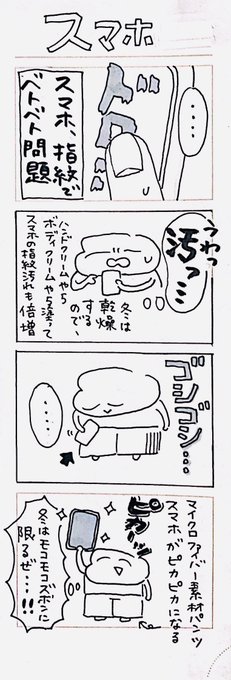 スマホ
・・・・
ベトォ
スマホ、指紋で
ベトベト問題
うわっ
汚っ…
冬は
乾燥
する
ので、
ハンドクリームやら
ボディクリームやら塗って
スマホの指紋汚れも倍増
ゴシゴシ…
・・・・
マイクロファイバー素材パンツ
スマホがピカピカになる
ピカーッ
冬はモコモコズボンに
限るぜ…!!